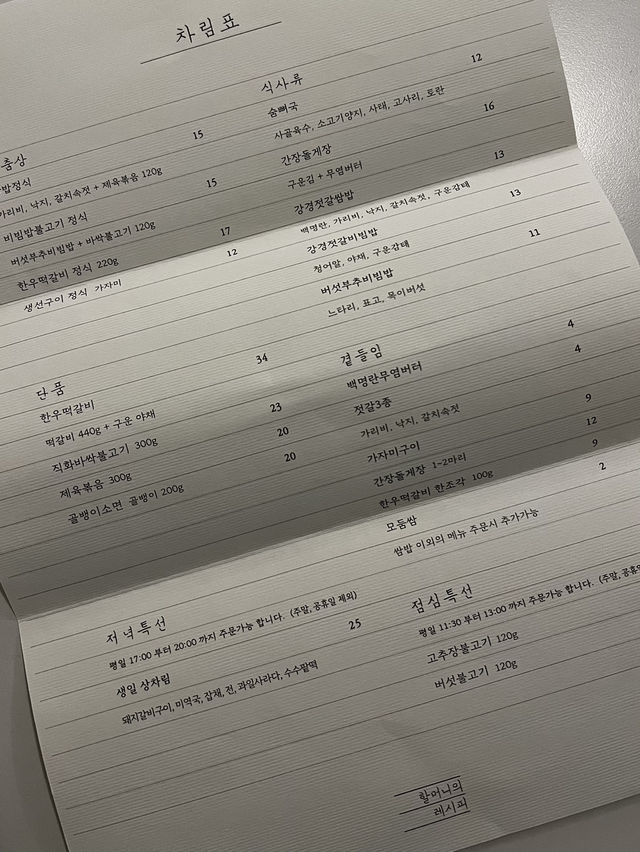 차림표
춤상
밥정식 15
가리비, 낙지, 갈치속젓 + 제육볶음 120g
비빔밥불고기 정식 15
버섯부추비빔밥 + 바싹불고기 120g
한우떡갈비 정식 220g 17
생선구이 정식 가자미 12
식사류
숨뼈국 12
사골육수, 소고기양지, 사래, 고사리, 토란
간장돌게장 16
구운김 + 무염버터
강경젓갈쌈밥 13
백명란, 가리비, 낙지, 갈치속젓, 구운감태
강경젓갈비빔밥 13
청어알, 야채, 구운감태
버섯부추비빔밥 11
느타리, 표고, 목이버섯
단품
한우떡갈비 34
떡갈비 440g + 구운 야채
직화바싹불고기 300g 23
제육볶음 300g 20
골뱅이소면 골뱅이 200g 20
곁들임
백명란무염버터 4
젓갈3종 4
가리비, 낙지, 갈치속젓
가자미구이 9
간장돌게장 1-2마리 12
한우떡갈비 한조각 100g 9
모둠쌈 2
쌈밥 이외의 메뉴 주문시 추가가능
저녁특선
평일 17:00 부터 20:00 까지 주문가능 합니다. (주말, 공휴일 제외)
생일 상차림 25
돼지갈비구이, 미역국, 잡채, 전, 과일사라다, 수수팥떡
점심특선
평일 11:30 부터 13:00 까지 주문가능 합니다. (주말, 공휴일
고추장불고기 120g
버섯불고기 120g
할머니의
레시피